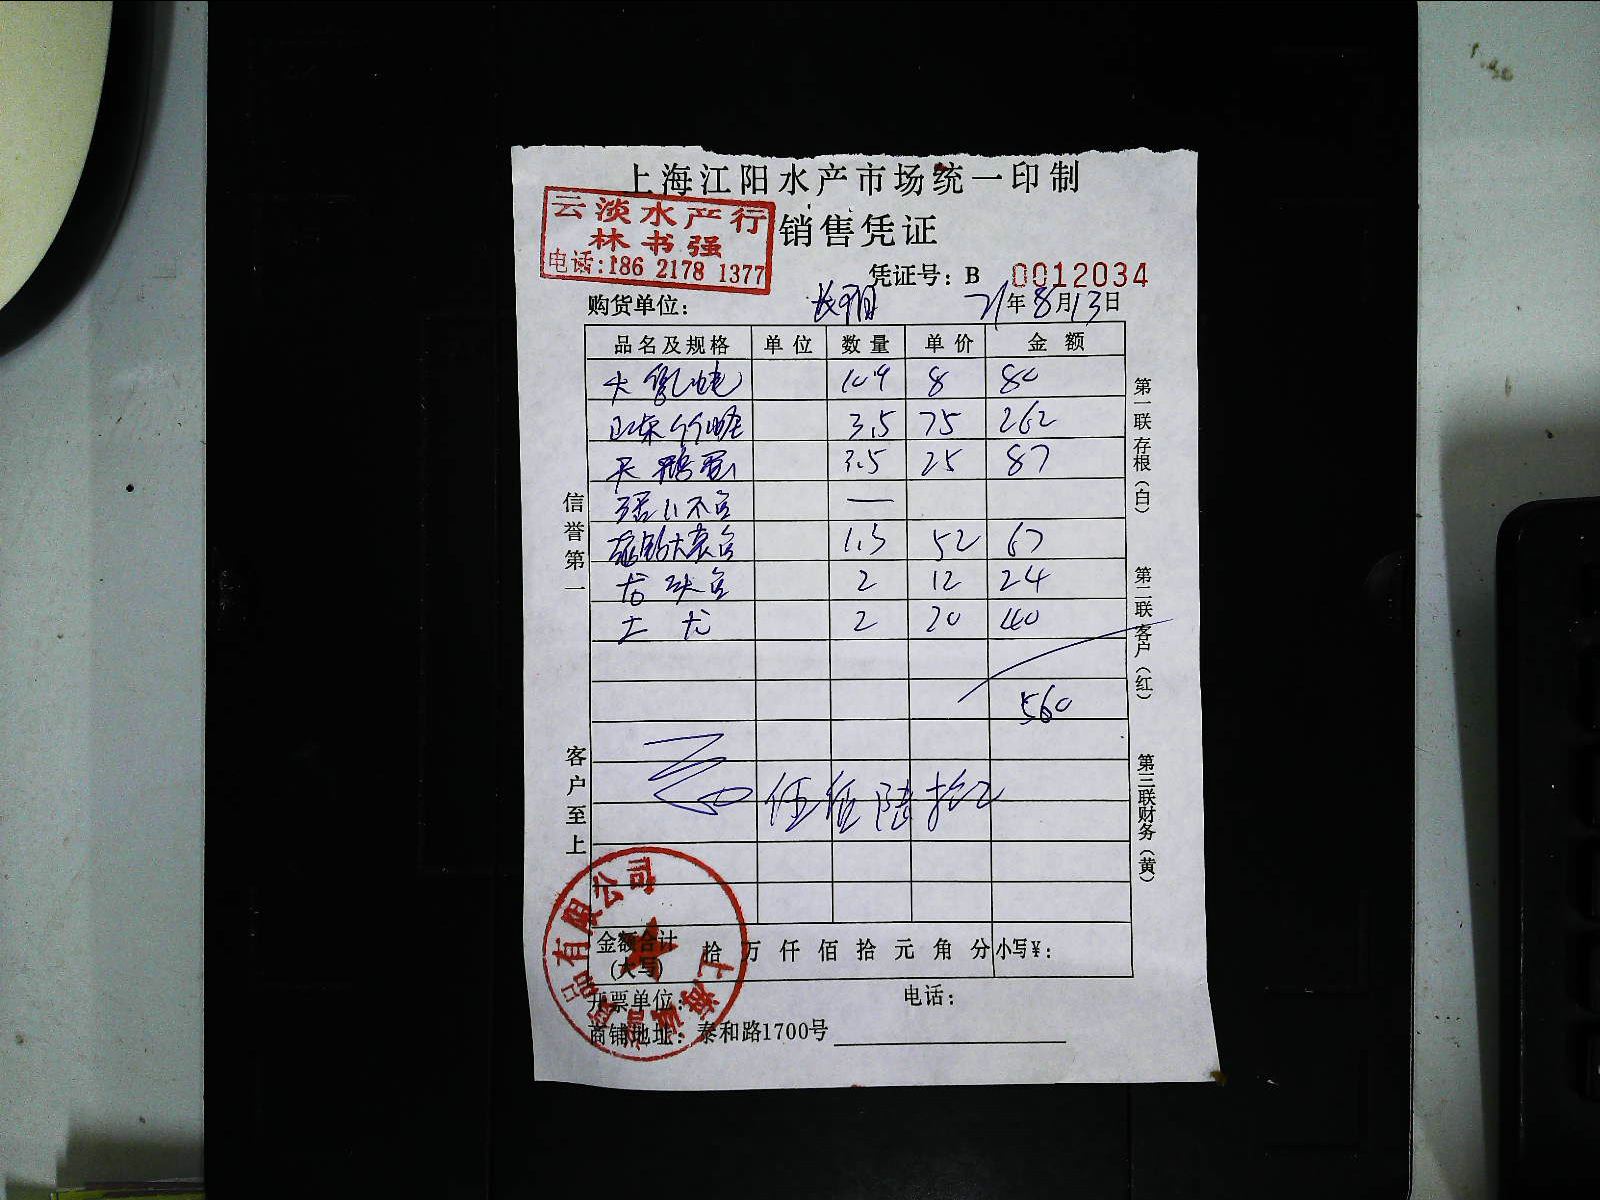 上海江阳水产市场统一印制
云淡水产行
林书强
电话:186 2178 1377
销售凭证
凭证号: B 0012034
购货单位: 21年8月13日
品名及规格 单位 数量 单价 金额
大 8 80
3.5 75 262
3.5 25 87
—
1.3 52 67
头鱼 2 12 24
土龙 2 20 40
560
伍佰陆拾元
信誉第一
客户至上
第一联存根(白)
第二联客户(红)
第三联财务(黄)
金额合计(大写) 拾 万 仟 佰 拾 元 角 分 小写¥:
开票单位: 电话:
商铺地址: 泰和路1700号
上海 品有限公司